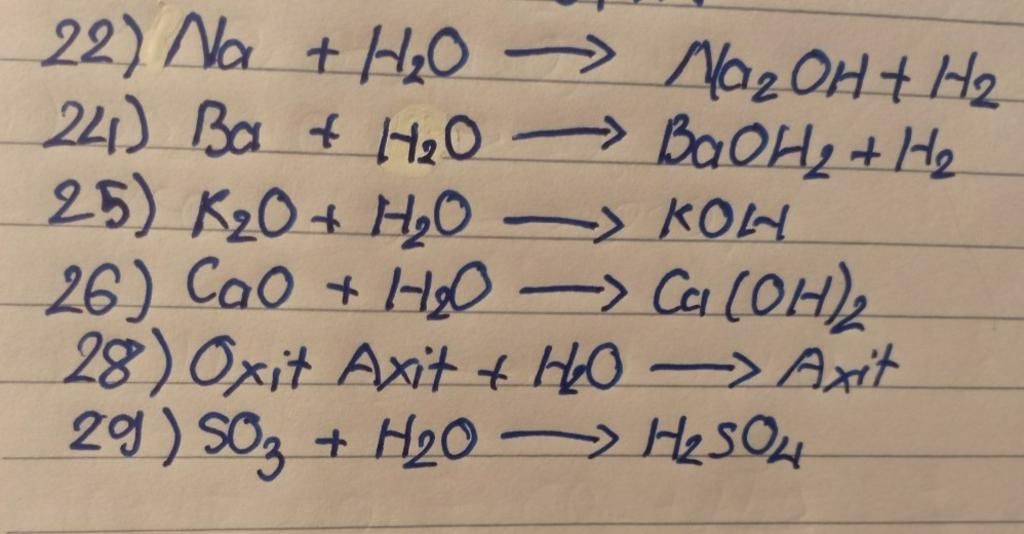 22) Na + H₂O → Na₂OH + H₂
24) Ba + H₂O → BaOH₂ + H₂
25) K₂O + H₂O → KOH
26) CaO + H₂O → Ca(OH)₂
28) Oxit Axit + H₂O → Axit
29) SO₃ + H₂O → H₂SO₄